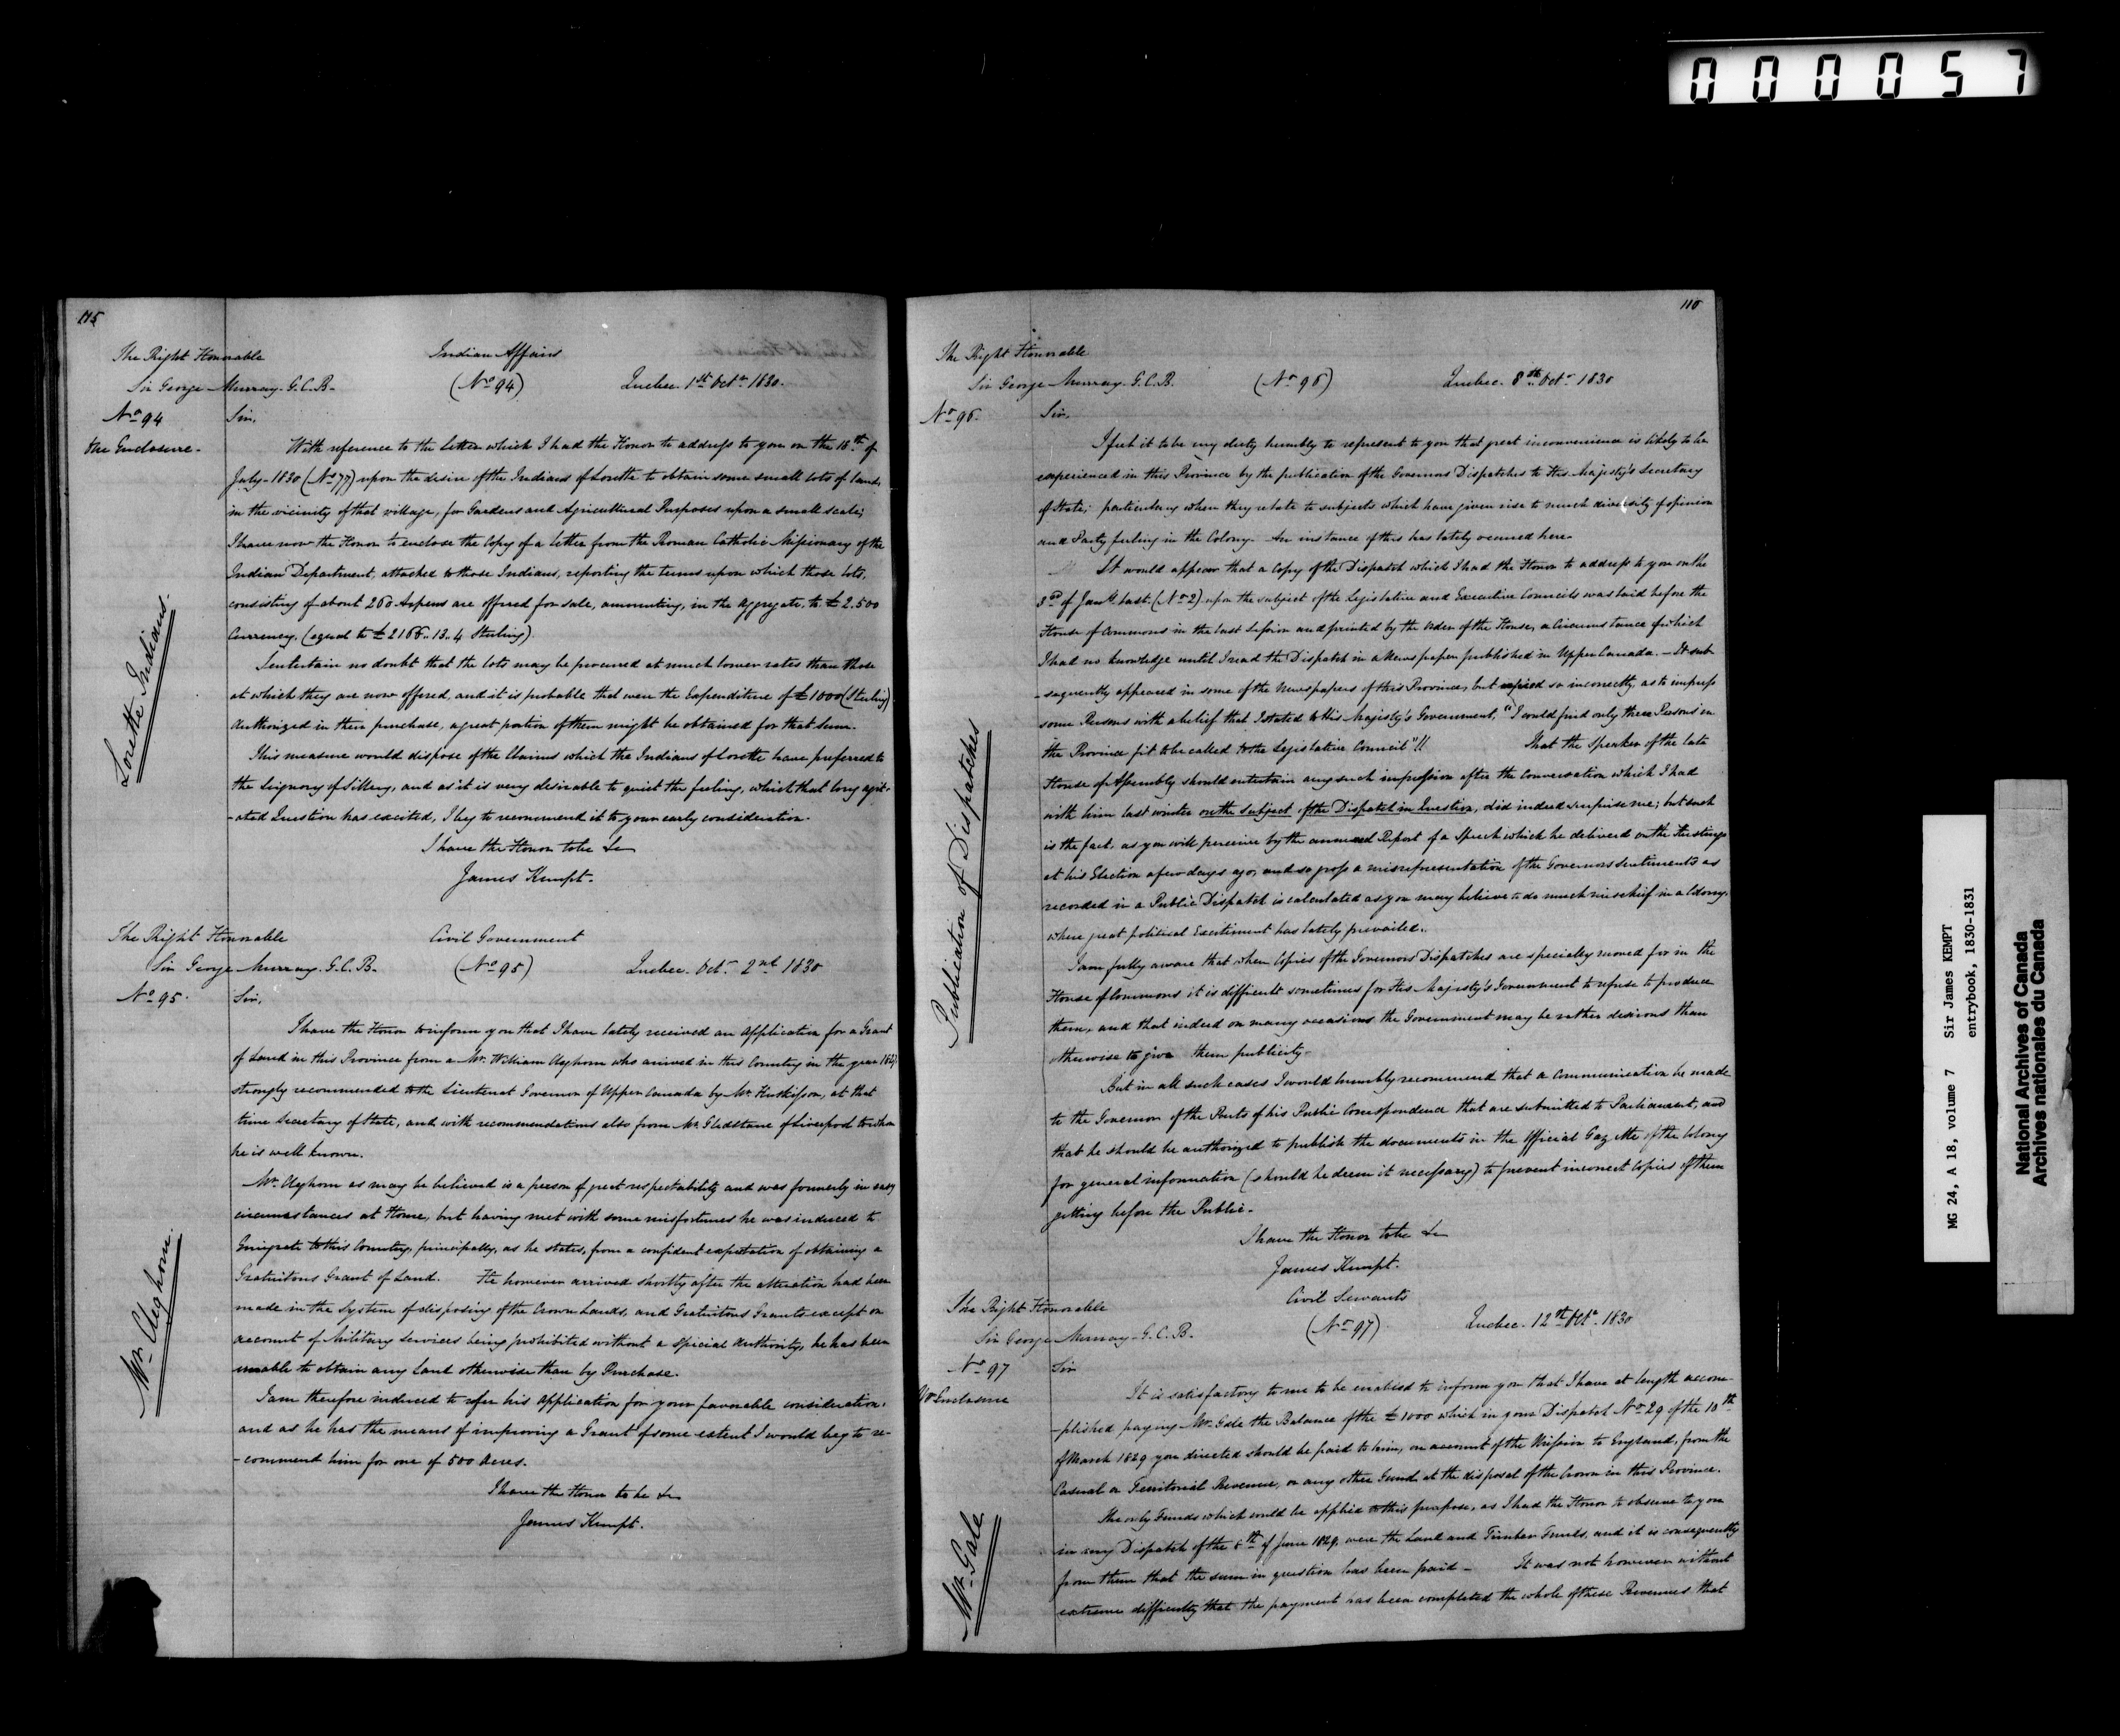 000057
115
The Right Honorable
Sir George Murray. G.C.B.
Indian Affairs
(No 94) Quebec. 1st Octr 1830.
No 94
One Enclosure.
Lorette Indians.
Sir,
With reference to the letter which I had the Honor to address to you on the 18th of
July 1830 (No 77) upon the desire of the Indians of Lorette to obtain some small lots of land,
in the vicinity of that village, for Gardens and Agricultural Purposes upon a small scale;
I have now the Honor to enclose the Copy of a letter from the Roman Catholic Missionary of the
Indian Department, attached to those Indians, reporting the terms upon which those lots,
consisting of about 260 Arpens are offered for sale, amounting, in the aggregate, to £2.500
Currency, (equal to £2166..13..4 Sterling).
I entertain no doubt that the lots may be procured at much lower rates than those
at which they are now offered, and it is probable that were the Expenditure of £1000 (Sterling)
authorized in their purchase, a great portion of them might be obtained for that sum.
This measure would dispose of the Claims which the Indians of Lorette have preferred to
the Seignory of Sillery, and as it is very desirable to quiet the feeling, which that long agit-
-ated Question has excited, I beg to recommend it to your early consideration.
I have the Honor to be &c
James Kempt.
The Right Honorable
Sir George Murray. G.C.B.
Civil Government
(No 95) Quebec. Octr 2nd 1830
No 95.
Mr. Cleghorn.
Sir,
I have the Honor to inform you that I have lately received an application for a Grant
of Land in this Province from a Mr. William Cleghorn who arrived in this Country in the year
strongly recommended to the Lieutenant Governor of Upper Canada by Mr. Huskisson, at that
time Secretary of State, and with recommendations also from Mr. Gladstane of Liverpool to whom
he is well known.
Mr. Cleghorn as may be believed is a person of great respectability and was formerly in easy
circumstances at Home, but having met with some misfortunes he was induced to
Emigrate to this Country, principally, as he states, from a confident expectation of obtaining a
Gratuitous Grant of Land. He however arrived shortly after the alteration had been
made in the System of disposing of the Crown Lands, and Gratuitous Grants except on
account of Military services being prohibited without a special authority, he has been
unable to obtain any Land otherwise than by Purchase.
I am therefore induced to refer his application for your favorable consideration,
and as he has the means of improving a Grant of some extent I would beg to re-
-comment him for one of 500 Acres.
I have the Honor to be &c
James Kempt.
116
The Right Honorable
Sir George Murray. G.C.B.
(No 96) Quebec. 8th Octr 1830
No 96.
Publication of Dispatches
Sir,
I feel it to be my duty humbly to represent to you that great inconvenience is likely to be
experienced in this Province by the publication of the Governors Dispatches to His Majesty's Secretary
of State; particularly when they relate to subjects which have given rise to much diversity of opinion
and Party feeling in the Colony. An instance of this has lately occurred here.
It would appear that a Copy of the Dispatch which I had the Honor to address to you on the
3rd of Jany last (No 2) upon the subject of the Legislative and Executive Councils was laid before the
House of Commons in the last Session and printed by the Order of the House, a Circumstance of which
I had no knowledge until I read the Dispatch in a Newspaper published in Upper Canada. - It sub-
-sequently appeared in some of the Newspapers of this Province, but copied so incorrectly, as to impress
some Persons with a belief that I stated to His Majesty's Government, "I could find only three Persons in
the Province fit to be called to the Legislative Council"!! That the Speaker of the late
House of Assembly should entertain any such impression after the conversation which I had
with him last winter on the subject of the Dispatch in Question, did indeed surprise me; but such
is the fact, as you will perceive by the annexed Report of a Speech which he delivered on the Hustings
at his Election a few days ago, and so gross a misrepresentation of the Governors sentiments as
recorded in a Public Dispatch is calculated as you may believe to do much mischief in a Colony,
where great political Excitement has lately prevailed.
I am fully aware that when Copies of the Governors Dispatches are specially moved for in the
House of Commons it is difficult sometimes for His Majesty's Government to refuse to produce
them, and that indeed on many occasions the Government may be rather desirous than
otherwise to give them publicity.
But in all such cases I would humbly recommend that a Communication be made
to the Governor of the Parts of his Public Correspondence that are submitted to Parliament, and
that he should be authorized to publish the documents in the Official Gazette of the Colony
for general information (should he deem it necessary) to prevent incorrect Copies of them
getting before the Public.
I have the Honor to be &c
James Kempt.
The Right Honorable
Sir George Murray. G.C.B.
Civil Servants
(No 97) Quebec. 12th Octr 1830
No 97
No Enclosure
Mr. Gale
Sir
It is satisfactory to me to be enabled to inform you that I have at length accom-
-plished paying Mr. Gale the Balance of the £1000 which in your Dispatch No 29 of the 10th
of March 1829 you directed should be paid to him, on account of the Mission to England, from the
Casual or Territorial Revenue, or any other Fund at the disposal of the Crown in this Province.
The only Funds which could be applied to this purpose, as I had the Honor to observe to you
in my Dispatch of the 8th of June 1829, were the Land and Timber Funds, and it is consequently
from them that the sum in question has been paid - It was not however without
extreme difficulty that the payment has been completed the whole of these Revenues that
MG 24, A 18, volume 7 Sir James KEMPT
entrybook, 1830-1831
National Archives of Canada
Archives nationales du Canada